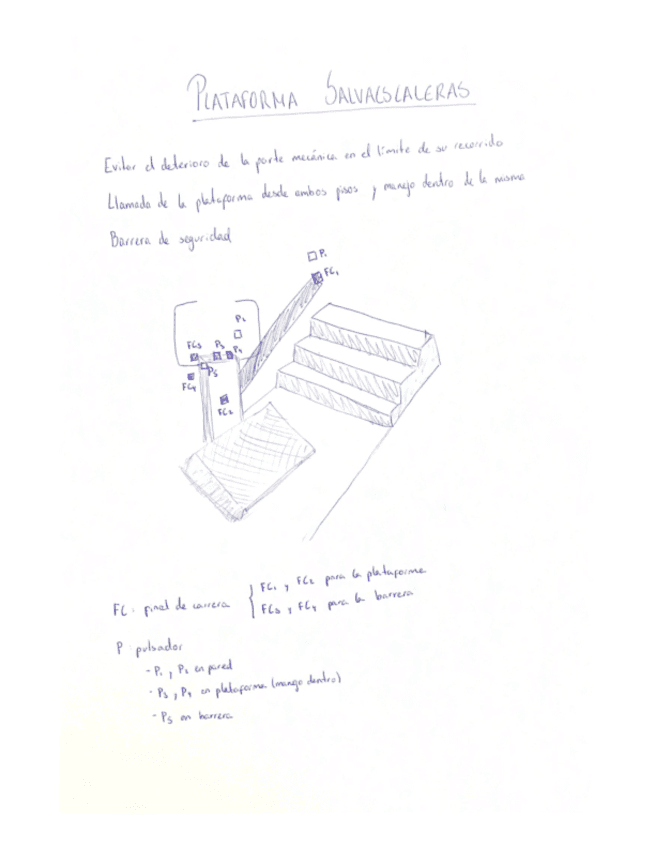 PLATAFORMA SALVAESCALERAS
Evitar el deterioro de la parte mecánica en el límite de su recorrido
Llamada de la plataforma desde ambos pisos y manejo dentro de la misma
Barrera de seguridad
P1
FC1
P2
FC3 P3 P4
P5
FC4
FC2
FC: final de carrera { FC1 y FC2 para la plataforma
FC3 y FC4 para la barrera
P: pulsador
- P1 y P2 en pared
- P3 y P4 en plataforma (manejo dentro)
- P5 en barrera